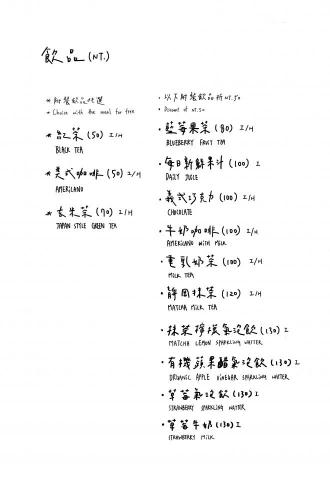 飲品 (NT.)
* 附餐飲品任選
* Choice with the meal for free
* 紅茶 (50) I/H
BLACK TEA
* 美式咖啡 (50) I/H
AMERICANO
* 玄米茶 (70) I/H
JAPAN STYLE GREEN TEA
· 以下附餐飲品折NT.50
· Discount of NT.50
· 藍莓果茶 (80) I/H
BLUEBERRY FRUIT TEA
· 每日新鮮果汁 (100) I
DAILY JUICE
· 義式巧克力 (100) I/H
CHOCOLATE
· 牛奶咖啡 (100) I/H
AMERICANO WITH MILK
· 重乳奶茶 (100) I/H
MILK TEA
· 靜岡抹茶 (120) I/H
MATCHA MILK TEA
· 抹茶檸檬氣泡飲 (130) I
MATCHA LEMON SPARKLING WATTER
· 有機蘋果醋氣泡飲 (130) I
ORGANIC APPLE VINEGAR SPARKLING WATTER
· 草莓氣泡飲 (130) I
STRAWBERRY SPARKLING WATTER
· 草莓牛奶 (130) I
STRAWBERRY MILK